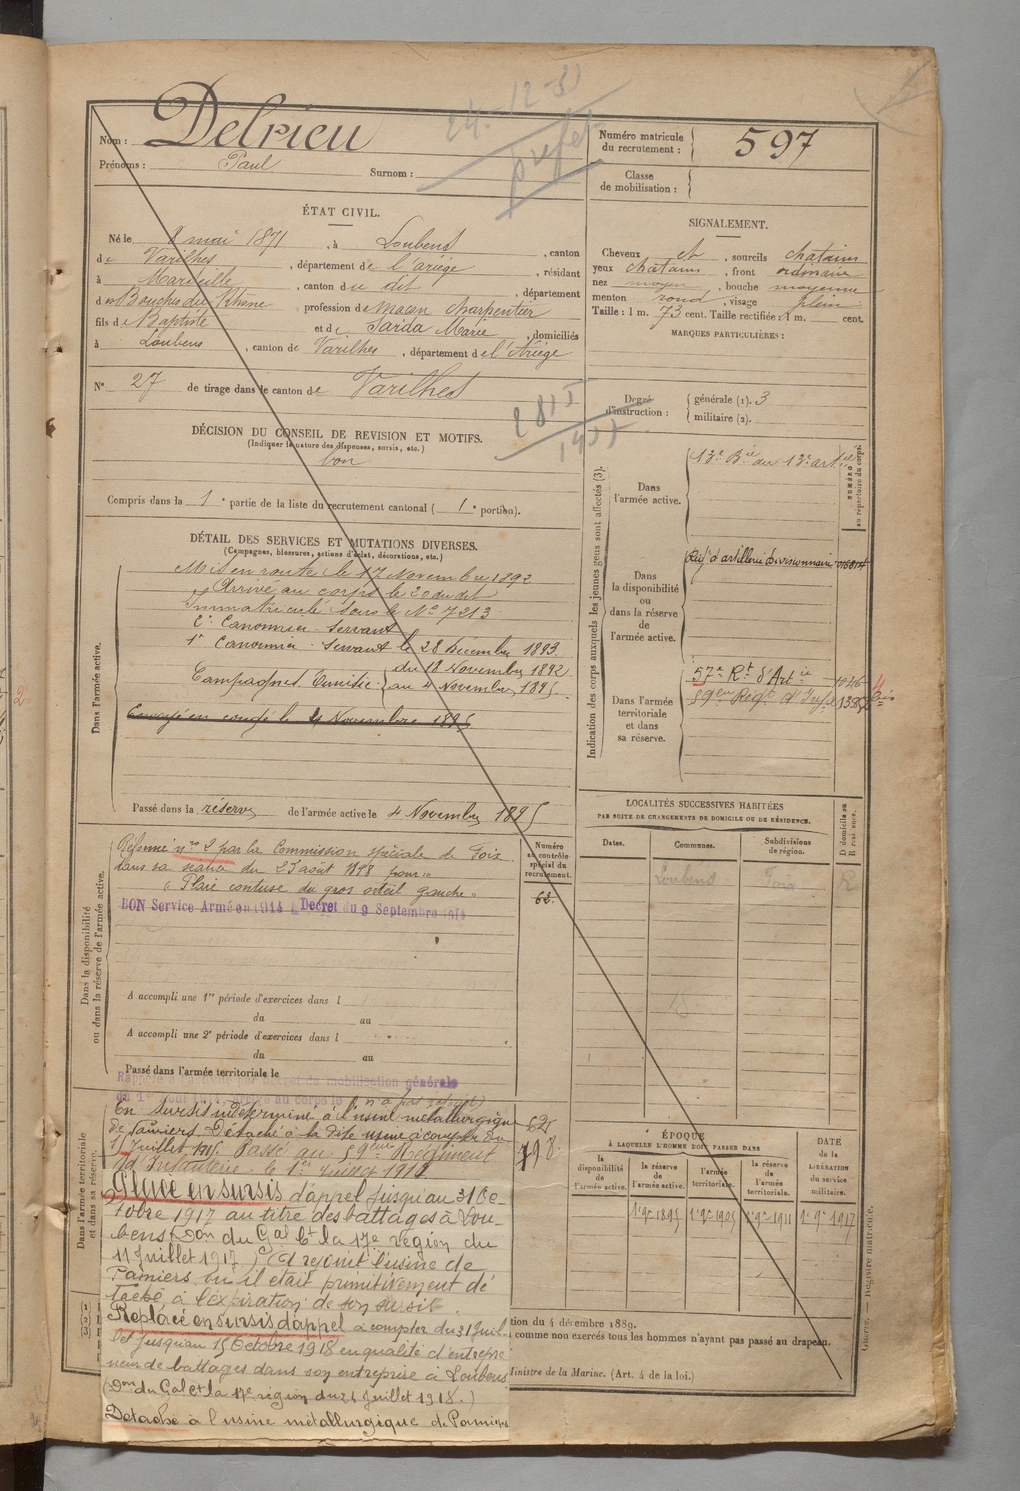 24-12-31
préfet
Nom : Delrieu
Prénoms : Paul
Surnom :
Numéro matricule du recrutement : 597
Classe de mobilisation :
ÉTAT CIVIL.
Né le 8 mai 1871, à Loubens, canton
de Varilhes, département de l'ariège, résidant
à Marseille, canton du dit, département
des Bouches du Rhône profession de Maçon charpentier
fils de Baptiste et de Saïda Marie, domiciliés
à Loubens, canton de Varilhes, département de l'Ariège
N° 27 de tirage dans le canton de Varilhes
SIGNALEMENT.
Cheveux et, sourcils chatain
yeux chatain, front ordinaire
nez moyen, bouche moyenne
menton rond, visage plein
Taille : 1 m. 73 cent. Taille rectifiée : 1 m. cent.
MARQUES PARTICULIÈRES :
Degré d'instruction : générale (1). 3
militaire (2).
DÉCISION DU CONSEIL DE REVISION ET MOTIFS.
(Indiquer la nature des dispenses, sursis, etc.)
bon
Compris dans la 1e partie de la liste du recrutement cantonal ( 1e portion).
DÉTAIL DES SERVICES ET MUTATIONS DIVERSES.
(Campagnes, blessures, actions d'éclat, décorations, etc.)
Dans l'armée active.
Mis en route le 17 Novembre 1892
Arrivé au corps le 20 du dit
Immatriculé sous le N° 7213
2e Canonnier-Servant
1er Canonnier-Servant le 28 Décembre 1893
Campagnes. Tunisie : du 18 Novembre 1892
au 4 Novembre 1895
Envoyé en congé le 4 Novembre 1895
Passé dans la réserve de l'armée active le 4 Novembre 1895
Indication des corps auxquels les jeunes gens sont affectés (3).
NUMÉRO au répertoire du corps.
Dans l'armée active.
13e Bie du 13e artie
Dans la disponibilité ou dans la réserve de l'armée active.
Rég d'artillerie divisionnaire
Dans l'armée territoriale et dans sa réserve.
57e Rt d'Artie
59eme Regt d'Infie
LOCALITÉS SUCCESSIVES HABITÉES
PAR SUITE DE CHANGEMENTS DE DOMICILE OU DE RÉSIDENCE.
Dates.
Communes.
Subdivisions de région.
D domicile ou R résidence.
Loubens Foix R
Numéro au contrôle spécial du recrutement.
62.
Dans la disponibilité ou dans la réserve de l'armée active.
Réformé n° 2 par la Commission spéciale de Foix
dans sa séance du 23 août 1898 pour
"Plaie contuse du gros orteil gauche"
BON Service Armé en 1914 Décret du 9 Septembre 1914
A accompli une 1re période d'exercices dans l
du au
A accompli une 2e période d'exercices dans l
du au
Passé dans l'armée territoriale le
Dans l'armée territoriale et dans sa réserve.
En sursis indéterminé à l'usine métallurgique
de Pamiers. Détaché à la dite usine à compter du
1er Juillet 1917. Passé au 59eme Régiment
d'Infanterie le 1er
Placé en sursis d'appel jusqu'au 31 Oc-
tobre 1917 au titre des battages à Lou-
bens (Don du Gal Ct la 17e région du
11 Juillet 1917) (A rejoint l'usine de
Pamiers où il était primitivement dé-
taché à l'expiration de son sursis.
Replacé en sursis d'appel à compter du 31 Juil-
let jusqu'au 15 Octobre 1918 en qualité d'entrepre
neur de battages dans son entreprise à Loubens
(Don du Gal Ct la 17e région du 24 Juillet 1918.)
Détaché à l'usine métallurgique de Pamiers
ÉPOQUE
À LAQUELLE L'HOMME DOIT PASSER DANS
la disponibilité de l'armée active.
la réserve de l'armée active.
l'armée territoriale.
la réserve de l'armée territoriale.
DATE de la LIBÉRATION du service militaire.
1er 9re 1895
1er 9re 1905
1er 9re 1911
1er 9re 1917
tion du 4 décembre 1889.
comme non exercés tous les hommes n'ayant pas passé au drapeau.
Ministre de la Marine. (Art. 4 de la loi.)
Registre matricule.